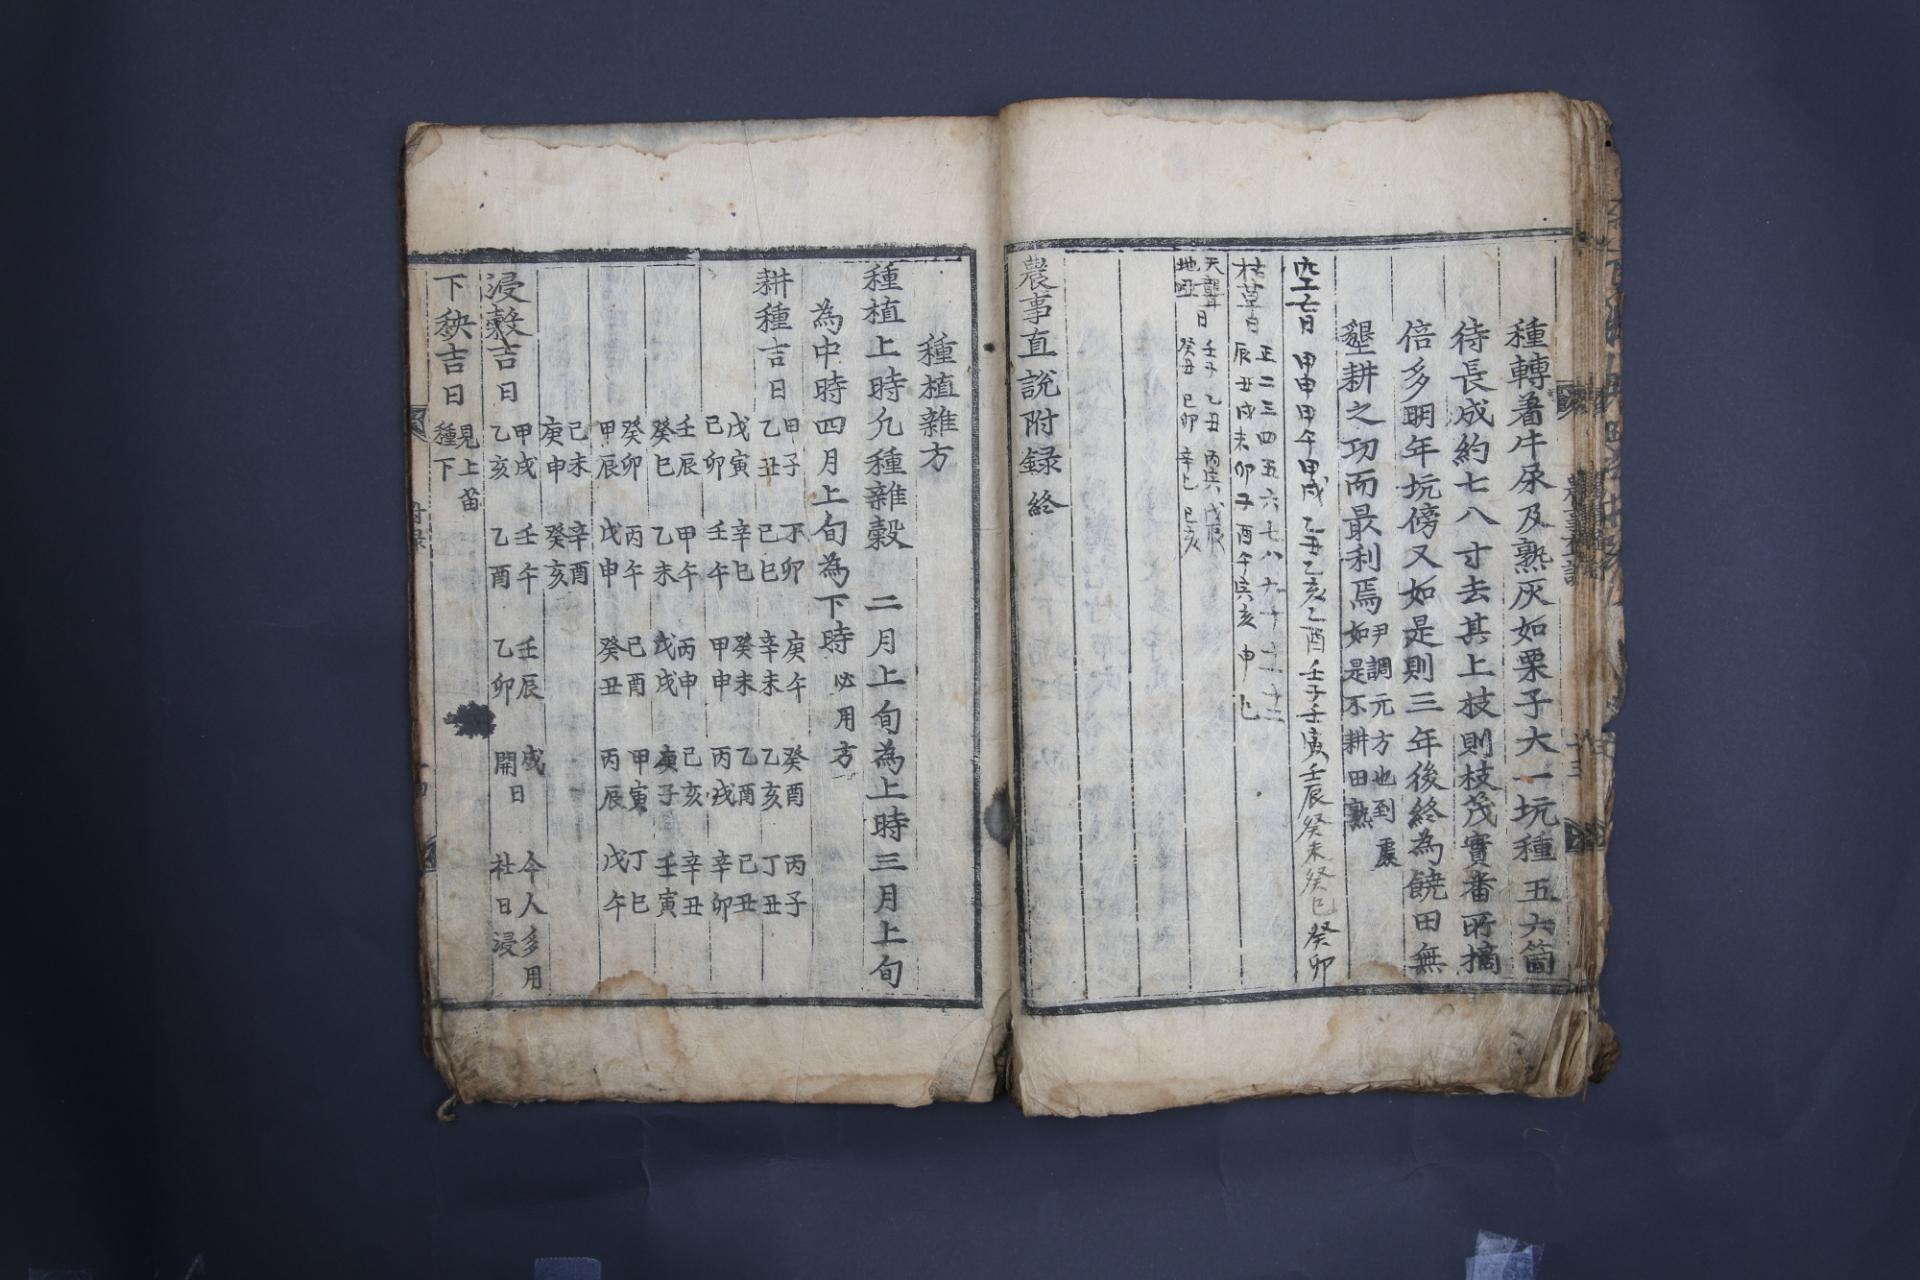 種轉著牛尿及熟灰如栗子大一坑種五六箇
待長成約七八寸去其上枝則枝茂實番所摘
倍多明年坑傍又如是則三年後終為饒田無
墾耕之功而最利焉
尹調元方也到處
如是不耕田熟
空亡日 甲申甲午甲戌乙丑乙亥乙酉壬子壬寅壬辰癸未癸巳癸卯
枯草日
正二三四五六七八九十十一十二
辰丑戌未卯子酉午寅亥申巳
天聾
地啞
日
壬子 乙丑 丙寅 戊辰
癸丑 己卯 辛巳 己亥
農事直說附録終
種植雜方
種植上時凡種雜穀二月上旬為上時三月上旬
為中時四月上旬為下時 必用方
耕種吉日
甲子 丁卯 庚午 癸酉 丙子
乙丑 己巳 辛未 乙亥 丁丑
戊寅 辛巳 癸未 乙酉 己丑
己卯 壬午 甲申 丙戌 辛卯
壬辰 甲午 丙申 己亥 辛丑
癸巳 乙未 戊戌 庚子 壬寅
癸卯 丙午 己酉 甲寅 丁巳
甲辰 戊申 癸丑 丙辰 戊午
己未 辛酉
庚申 癸亥
浸穀吉日
甲戌 壬午 壬辰 成 今人多用
乙亥 乙酉 乙卯 開日 社日浸
下秧吉日
見上苗
種下